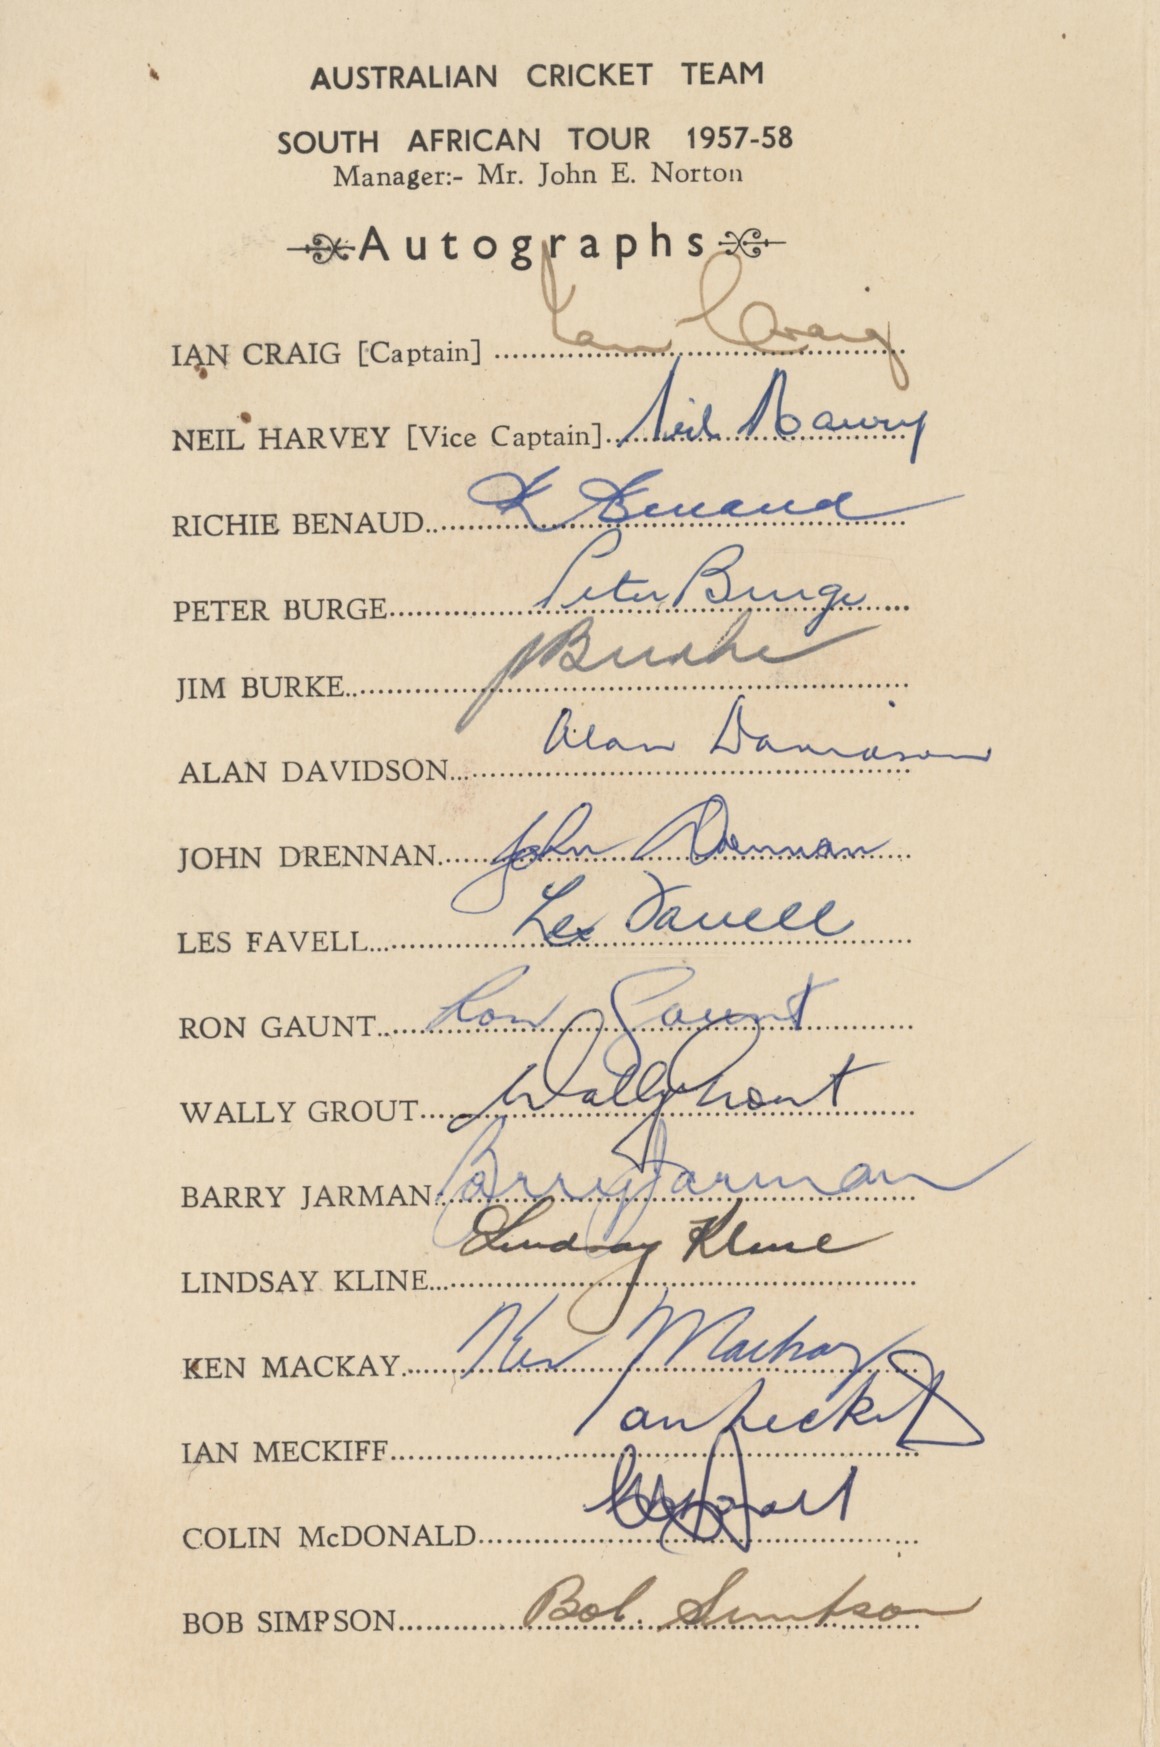 AUSTRALIAN CRICKET TEAM
SOUTH AFRICAN TOUR 1957-58
Manager:- Mr. John E. Norton
Autographs
IAN CRAIG [Captain] Ian Craig
NEIL HARVEY [Vice Captain] Neil Harvey
RICHIE BENAUD R Benaud
PETER BURGE Peter Burge
JIM BURKE J Burke
ALAN DAVIDSON Alan Davidson
JOHN DRENNAN John Drennan
LES FAVELL Les Favell
RON GAUNT Ron Gaunt
WALLY GROUT Wally Grout
BARRY JARMAN Barry Jarman
LINDSAY KLINE Lindsay Kline
KEN MACKAY Ken Mackay
IAN MECKIFF Ian Meckiff
COLIN McDONALD
BOB SIMPSON Bob Simpson